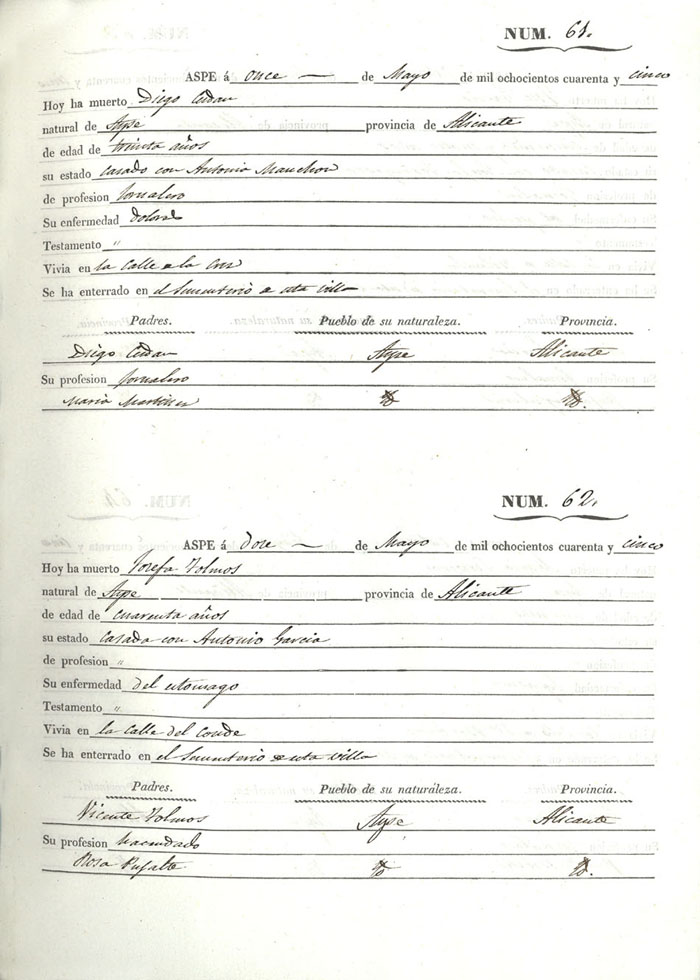 NUM. 61.
ASPE á once — de Mayo de mil ochocientos cuarenta y cinco
Hoy ha muerto Diego
natural de Aspe provincia de Alicante
de edad de treinta años
su estado casado con Antonia Manchon
de profesion Jornalero
Su enfermedad
Testamento "
Vivia en la Calle de la Cruz
Se ha enterrado en el Sementerio de esta villa
Padres. Pueblo de su naturaleza. Provincia.
Diego Aspe Alicante
Su profesion Jornalero
Maria Martinez
NUM. 62.
ASPE á Dose — de Mayo de mil ochocientos cuarenta y cinco
Hoy ha muerto Josefa Tolmos
natural de Aspe provincia de Alicante
de edad de cuarenta años
su estado casada con Antonio Garcia
de profesion "
Su enfermedad del estomago
Testamento "
Vivia en la Calle del Conde
Se ha enterrado en el Sementerio de esta villa
Padres. Pueblo de su naturaleza. Provincia.
Vicente Tolmos Aspe Alicante
Su profesion hacendado
Rosa Pujalte